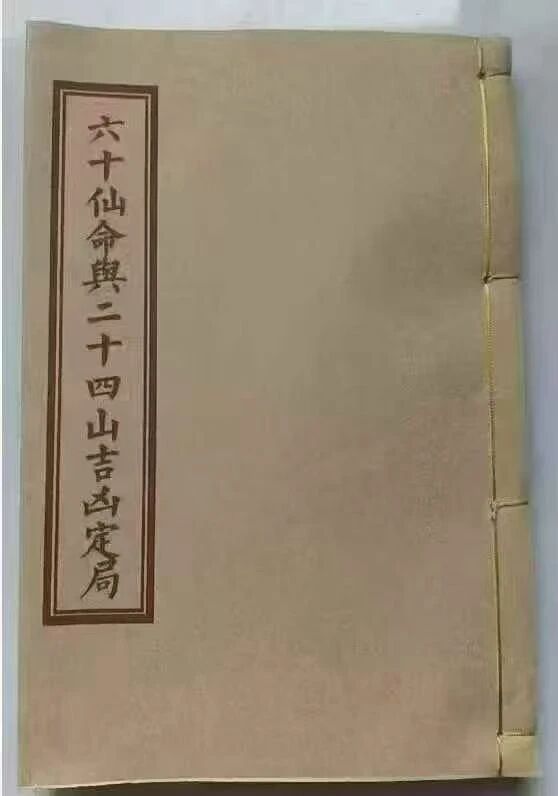 六十仙命與二十四山吉凶定局